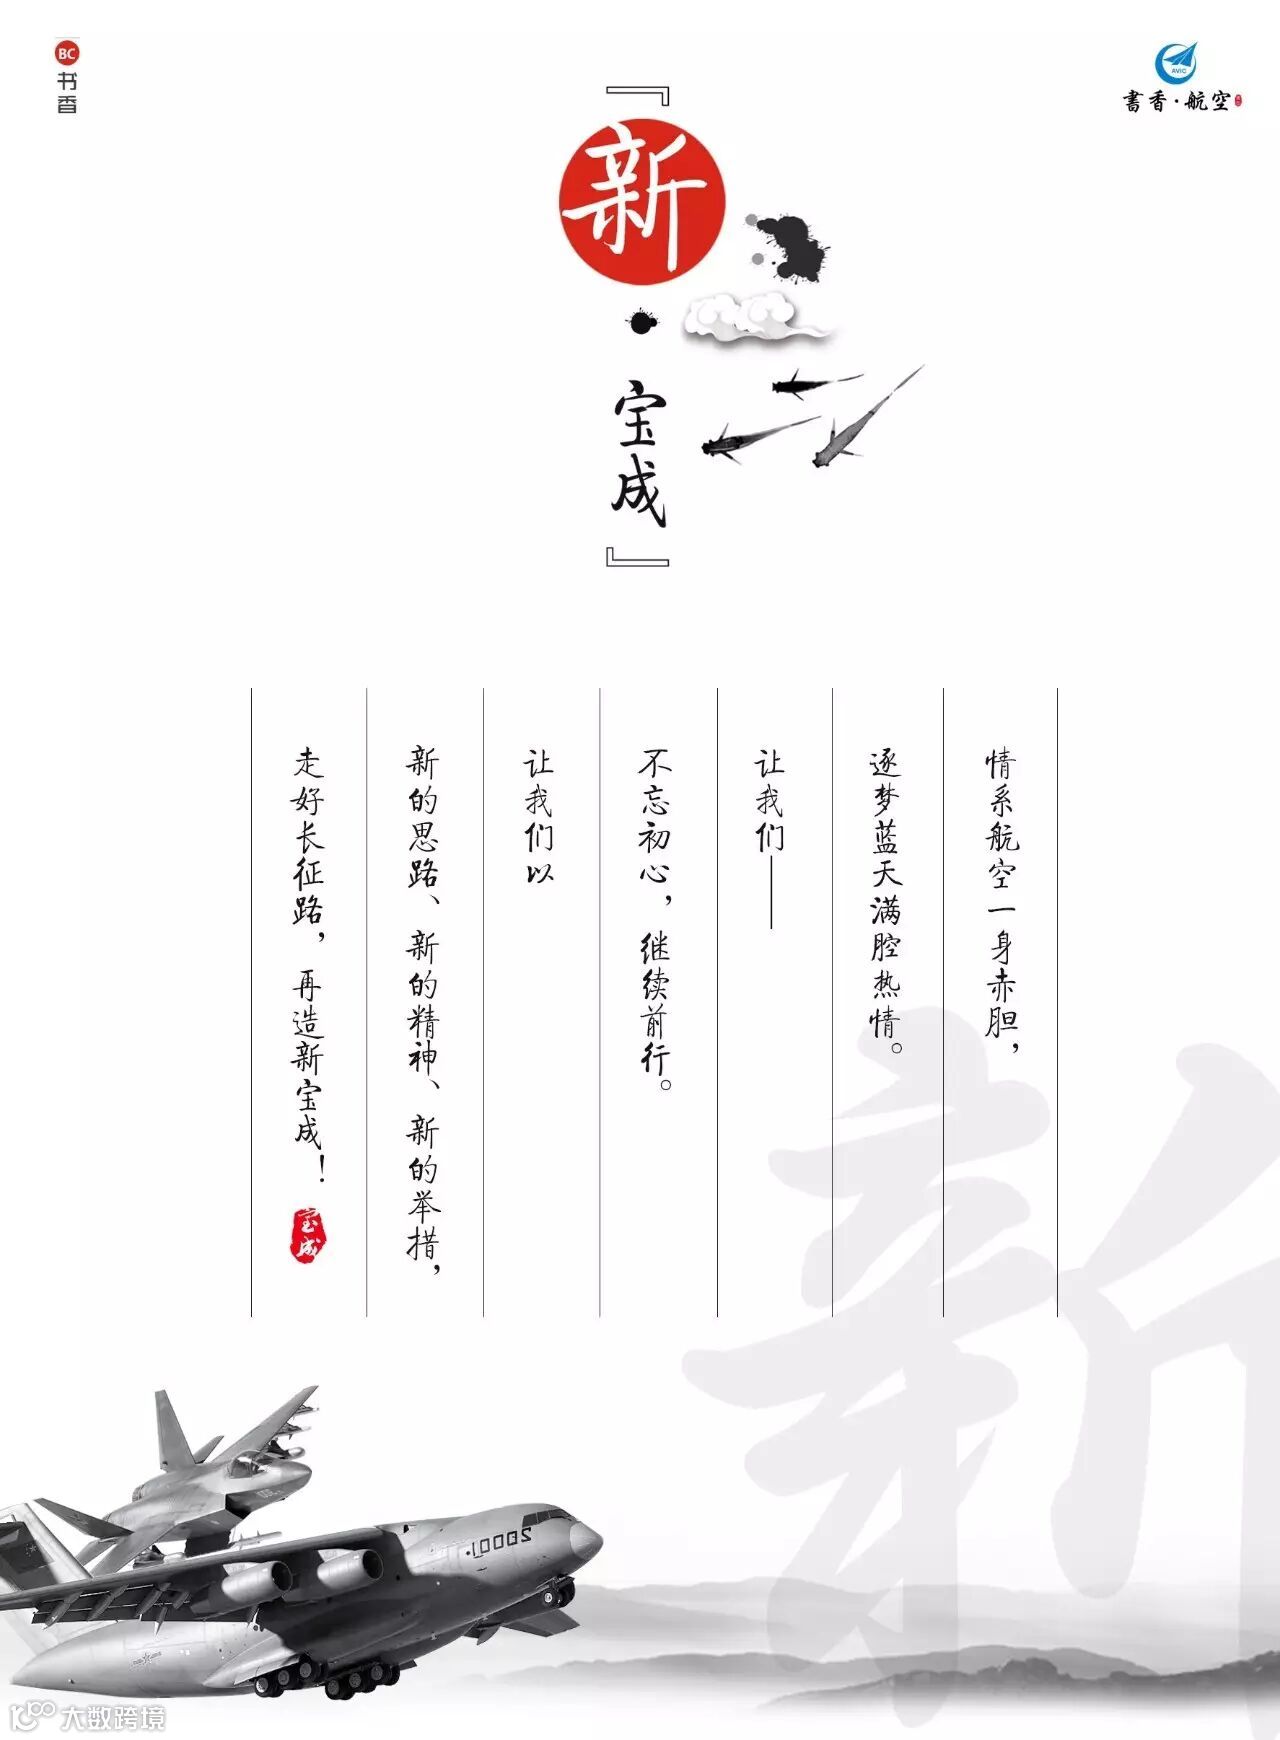 BC
书香
AVIC
書香·航空
『新·宝成』
情系航空一身赤胆，
逐梦蓝天满腔热情。
让我们——
不忘初心，继续前行。
让我们以
新的思路、新的精神、新的举措，
走好长征路，再造新宝成！
宝成
新
大数跨境